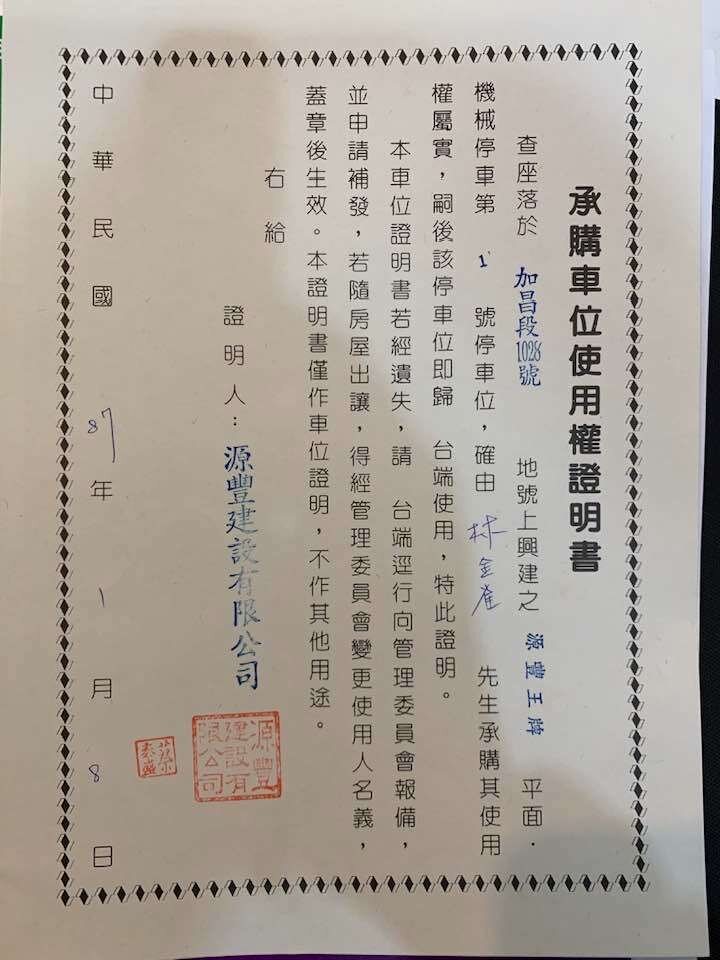 承購車位使用權證明書
查座落於 加昌段1028號 地號上興建之 源豐王牌 平面．
機械停車第 1 號停車位，確由 林金雀 先生承購其使用
權屬實，嗣後該停車位即歸 台端使用，特此證明。
本車位證明書若經遺失，請 台端逕行向管理委員會報備，
並申請補發，若隨房屋出讓，得經管理委員會變更使用人名義，
蓋章後生效。本證明書僅作車位證明，不作其他用途。
右給
證明人：源豐建設有限公司
源豐建設有限公司
中華民國 87 年 1 月 8 日